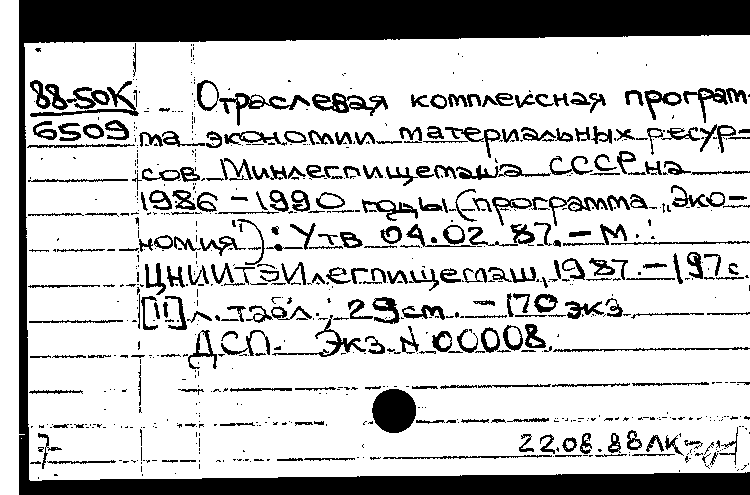 88-50К Отраслевая комплексная програм-
6509 ма экономии материальных ресур-
сов Минлегпищемаша СССР на
1986-1990 годы (программа „Эко-
номия"): Утв 04.02.87. - М.:
ЦНИИТЭИлегпищемаш, 1987. - 197с.
[11] л. табл.; 29см. - 170 экз.
ДСП. Экз. N 00008.
7 22.08.88ЛК